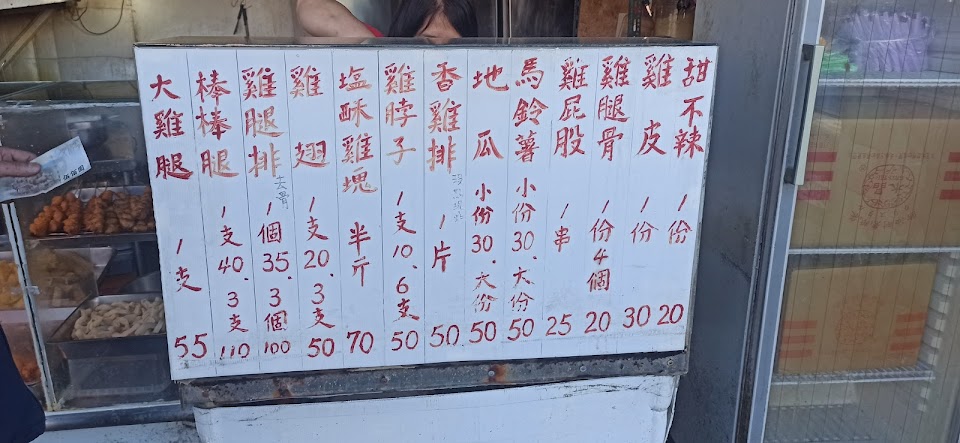 大雞腿 1支 55
棒棒腿 1支40.3支110
雞腿排 去骨 1個35.3個100
雞翅 1支20.3支50
塩酥雞塊 半斤 70
雞脖子 1支10.6支50
香雞排 1片 50
地瓜 小份30.大份50
馬鈴薯 小份30.大份50
雞屁股 1串 25
雞腿骨 1份4個 20
雞皮 1份 30
甜不辣 1份 20